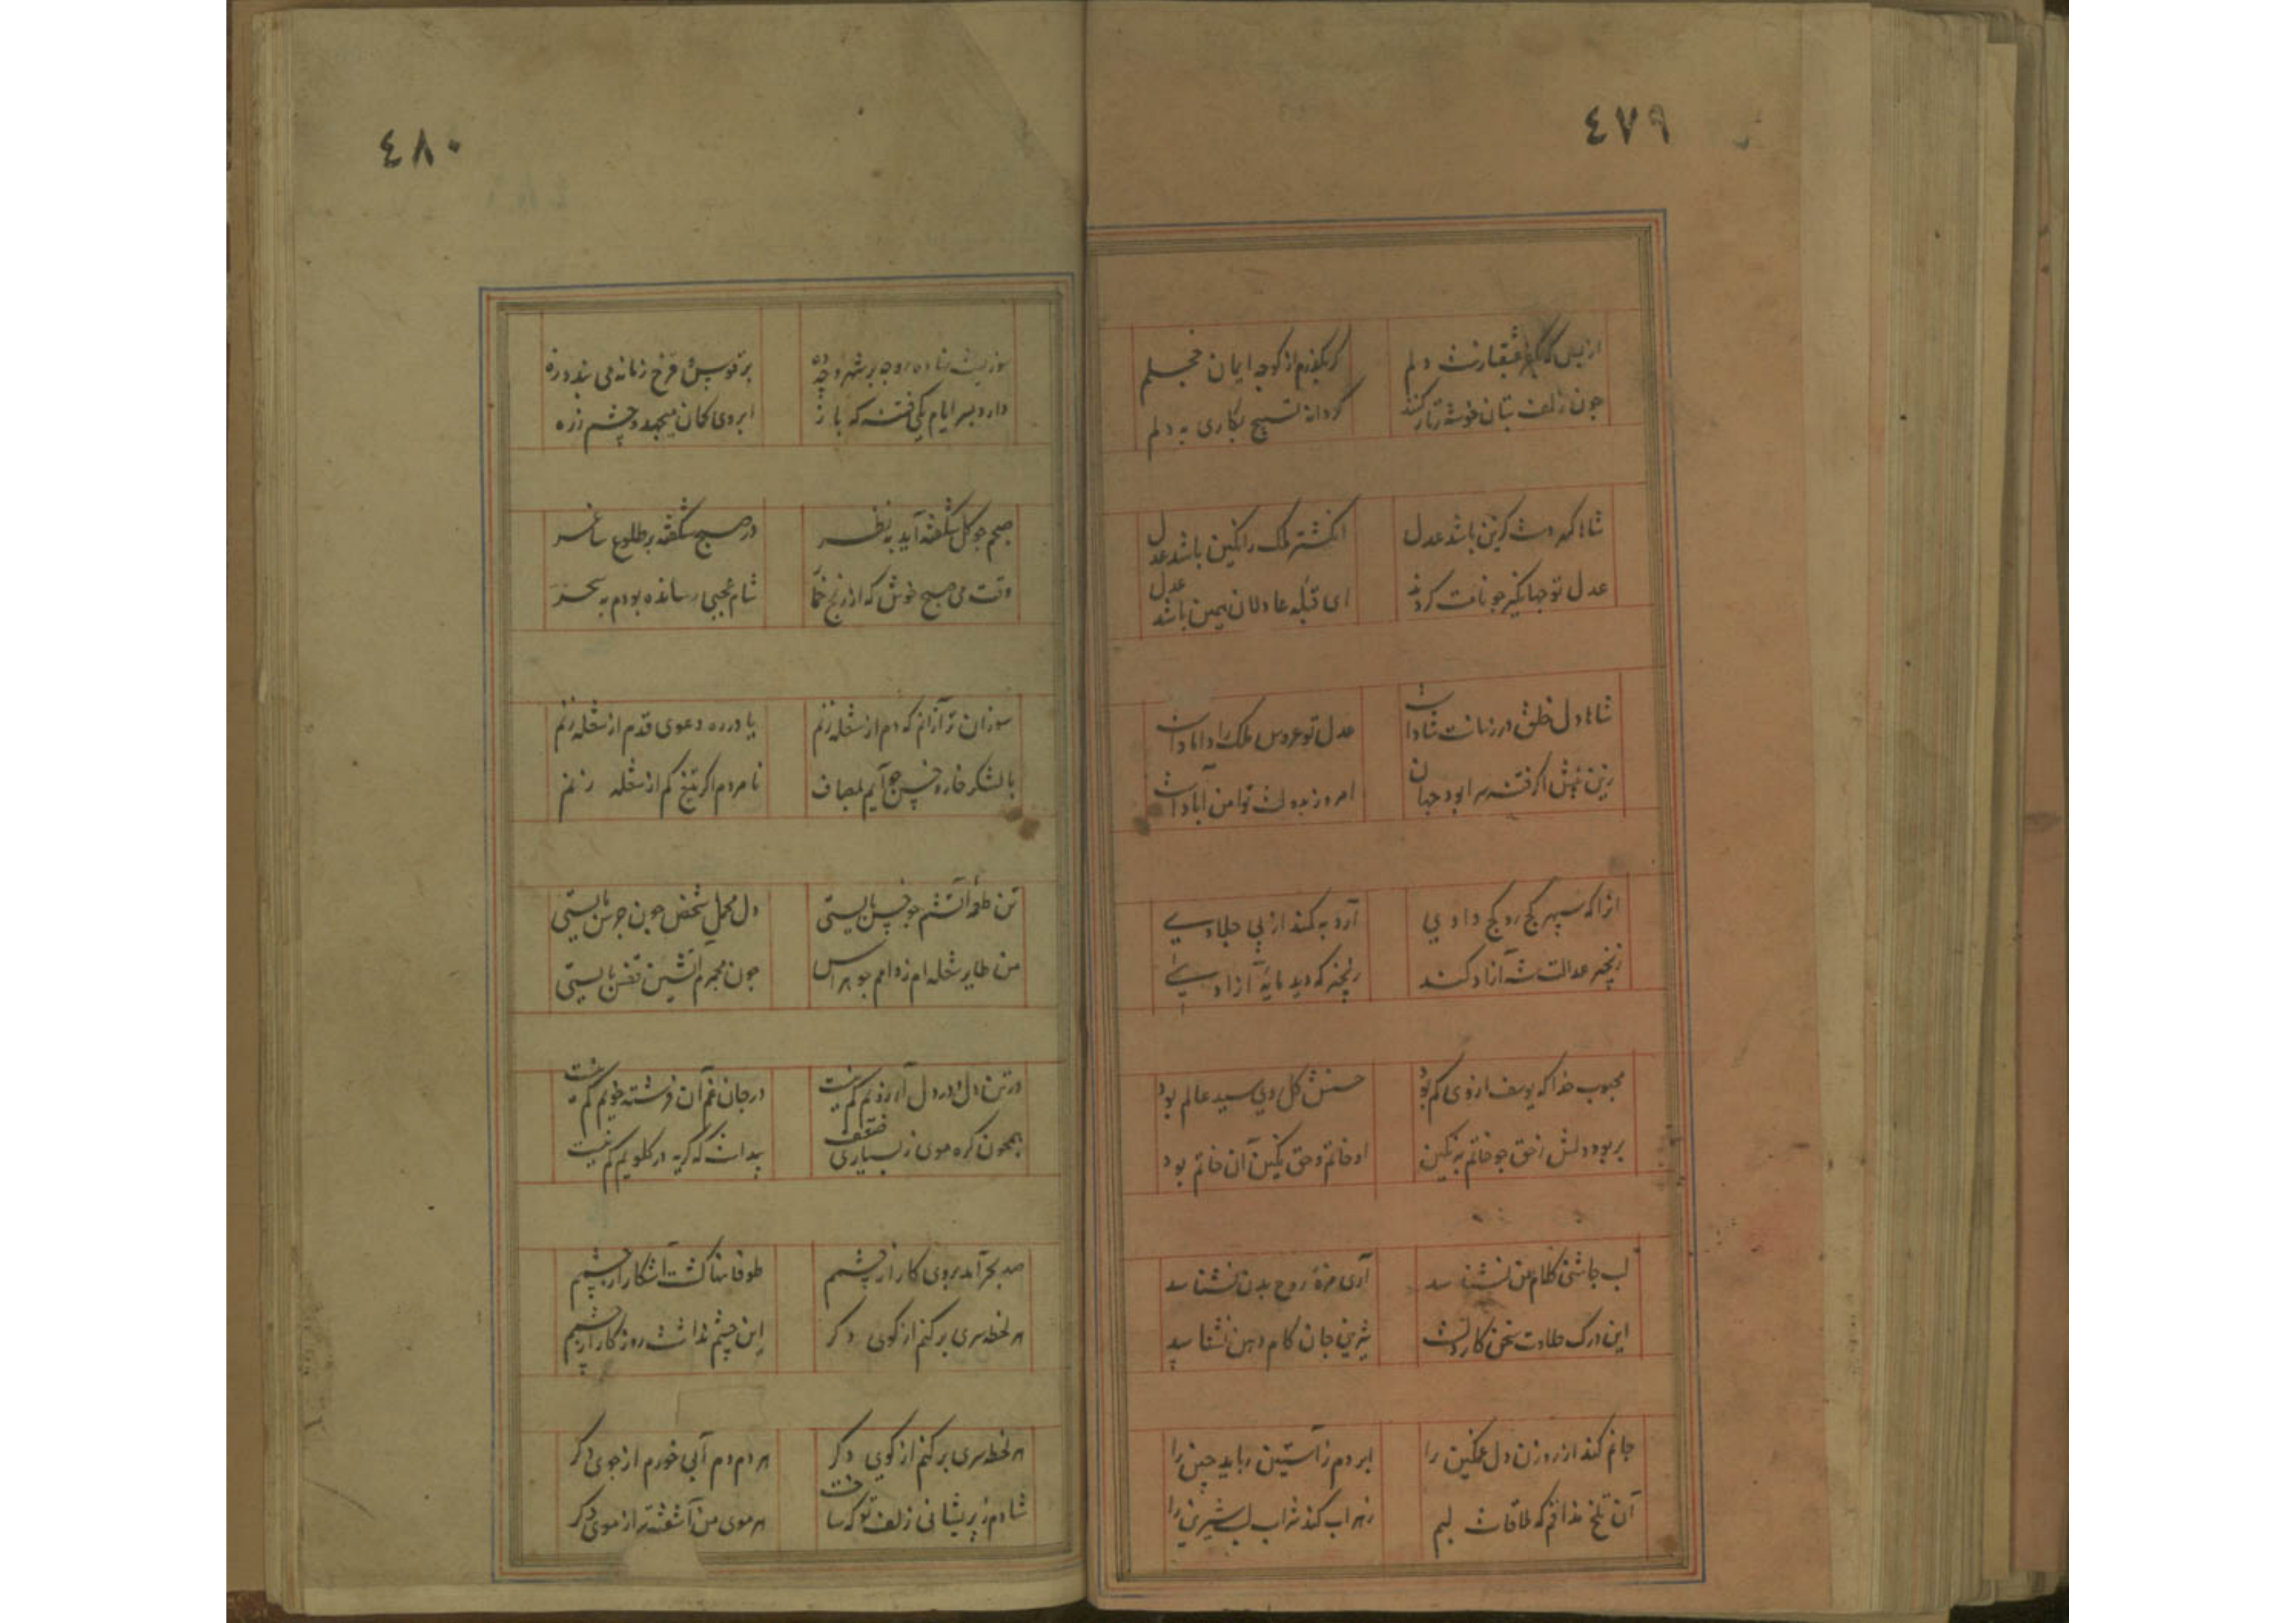 ٤٧٩
دلم گر بگذرم از کوچه ایمان خجلم
چون زلف بتان خوشه زنار کند گر دانه تسبیح بکاری به دلم
شاها که باشد عدل انگشتر ملک را نگین باشد عدل
عدل تو جهانگیر چو نامت گردید ای قبله عادلان همین باشد عدل
شاها دل خلق در زمانت شادست عدل تو عروس ملک را دامادست
زین پیش اگر فتنه سرا بود جهان امروز بدولت تو امن آبادست
آنرا که سپهر کج رو کج دادی آرد به کمند از پی جلادی
زنجیر عدالت شه آزاد کند زنجیر که دید مایهٔ آزادی
محبوب خدا که یوسف از وی کم بود حسنش گل روی سید عالم بود
بربود دلش ز حق چو خاتم به نگین او خاتم و حق نگین آن خاتم بود
لب چاشنی کلام من نشناسد آری مزهٔ روح بدن نشناسد
این درک حلاوت سخن کار دلست شیرین جان کام دهن نشناسد
جانم کند از روزن دل غمگین را ابر دم ز آستین رباید چین را
آن تلخ مذاقم که ملاقات لبم زهراب کند شراب لب شیرین را
٤٨٠
بر قوس قزح زمانه می بندد زه
دارد بسر ایام یکی فتنه که باز ابروی کمان میجهد و چشم زره
صبحم چو گل شگفته آید به نظر در صبح شگفته بر طلوع ساغر
وقت می صبح خوش که از رنج خمار شام عجبی رسانده بودم به سحر
سوزان تر از آنم که دم از شعله زنم یا در ره دعوی قدم از شعله زنم
با لشکر خار و خس چو آیم بمصاف نامردم اگر تیغ کم از شعله زنم
تن طعمهٔ آتشم چو خس بایستی دل محمل شخص چون جرس بایستی
من طایر شعله ام ز دامم چه هراس چون مجمرم آتشین قفس بایستی
در تن دل و در دل آرزویم کم نیست در جان غم آن فرشته خویم کم نیست
همچون گره موی ز بسیاری ضعف پیداست که گریه در گلویم کم نیست
صد بحر آمد بروی کار از چشمم طوفانها گشت آشکار از چشمم
هر لحظه سری بر کنم از کوی دگر این چشم نداشت روزگار از چشمم
هر لحظه سری بر کنم از کوی دگر هر دم دم آبی خورم از جوی دگر
شادم ز پریشانی زلف تو که ساخت هر موی من آشفته تر از موی دگر